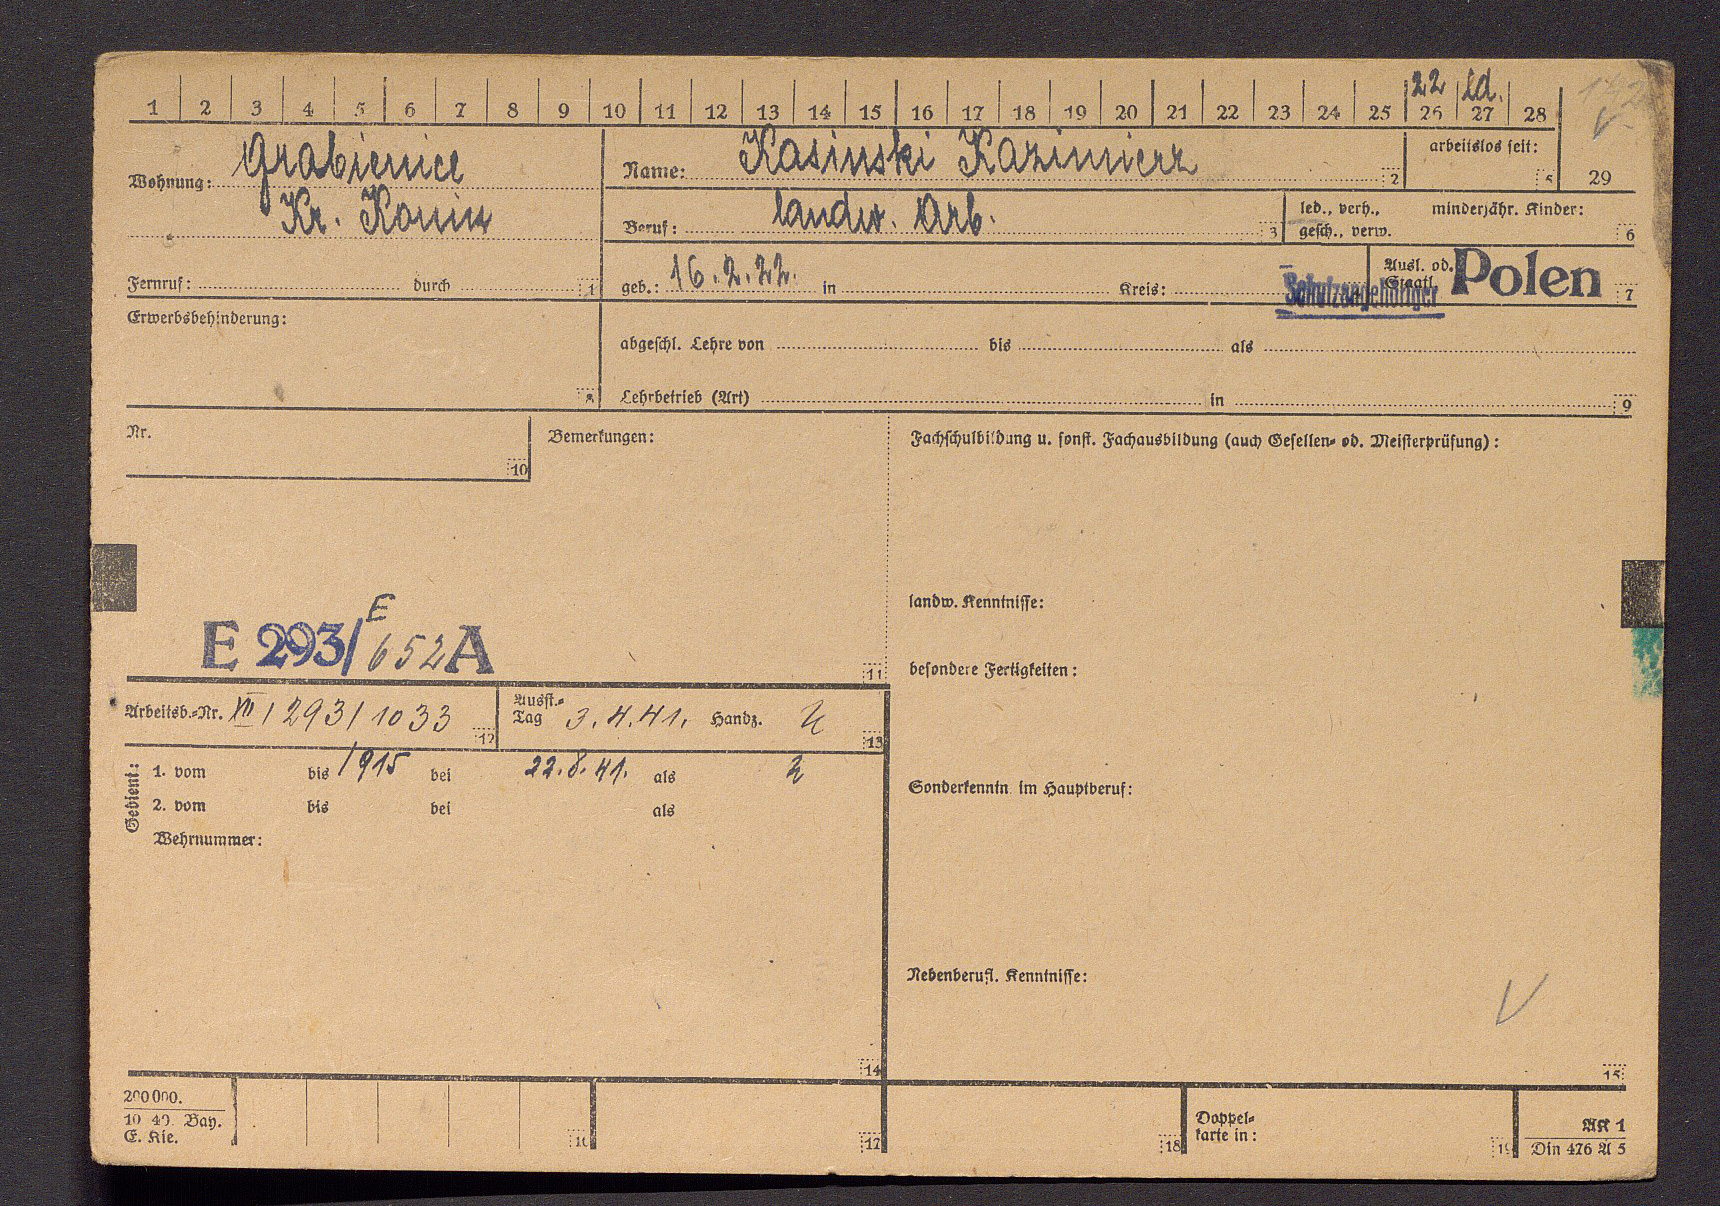 1 2 3 4 5 6 7 8 9 10 11 12 13 14 15 16 17 18 19 20 21 22 23 24 25 26 27 28
22 ld.
Wohnung: Grabienice
Kr. Konin
Fernruf: durch 1
Name: Kasinski Kazimierz 2
arbeitslos seit: 5
29
Beruf: landw. Arb. 3
led., verh., gesch., verw.
minderjähr. Kinder: 6
geb.: 16.2.22. in Kreis:
Schutzangehöriger
Ausl. od. Staatl. Polen 7
Erwerbsbehinderung: 8
abgeschl. Lehre von bis als
Lehrbetrieb (Art) in 9
Nr. 10
Bemerkungen:
Fachschulbildung u. sonst. Fachausbildung (auch Gesellen- od. Meisterprüfung):
landw. Kenntnisse:
E
E 293/652 A
11
besondere Fertigkeiten:
Arbeitsb.-Nr. VII/293/1033 12
Ausst.-Tag 3.4.41. Handz. 13
Gedient:
1. vom bis 1915 bei 22.8.41. als
2. vom bis bei als
Wehrnummer:
Sonderkenntn. im Hauptberuf:
Nebenberufl. Kenntnisse:
14
15
200000.
10 40. Bay.
E. Kie.
16
17
18
Doppel-
karte in: 19
AK 1
Din 476 A 5